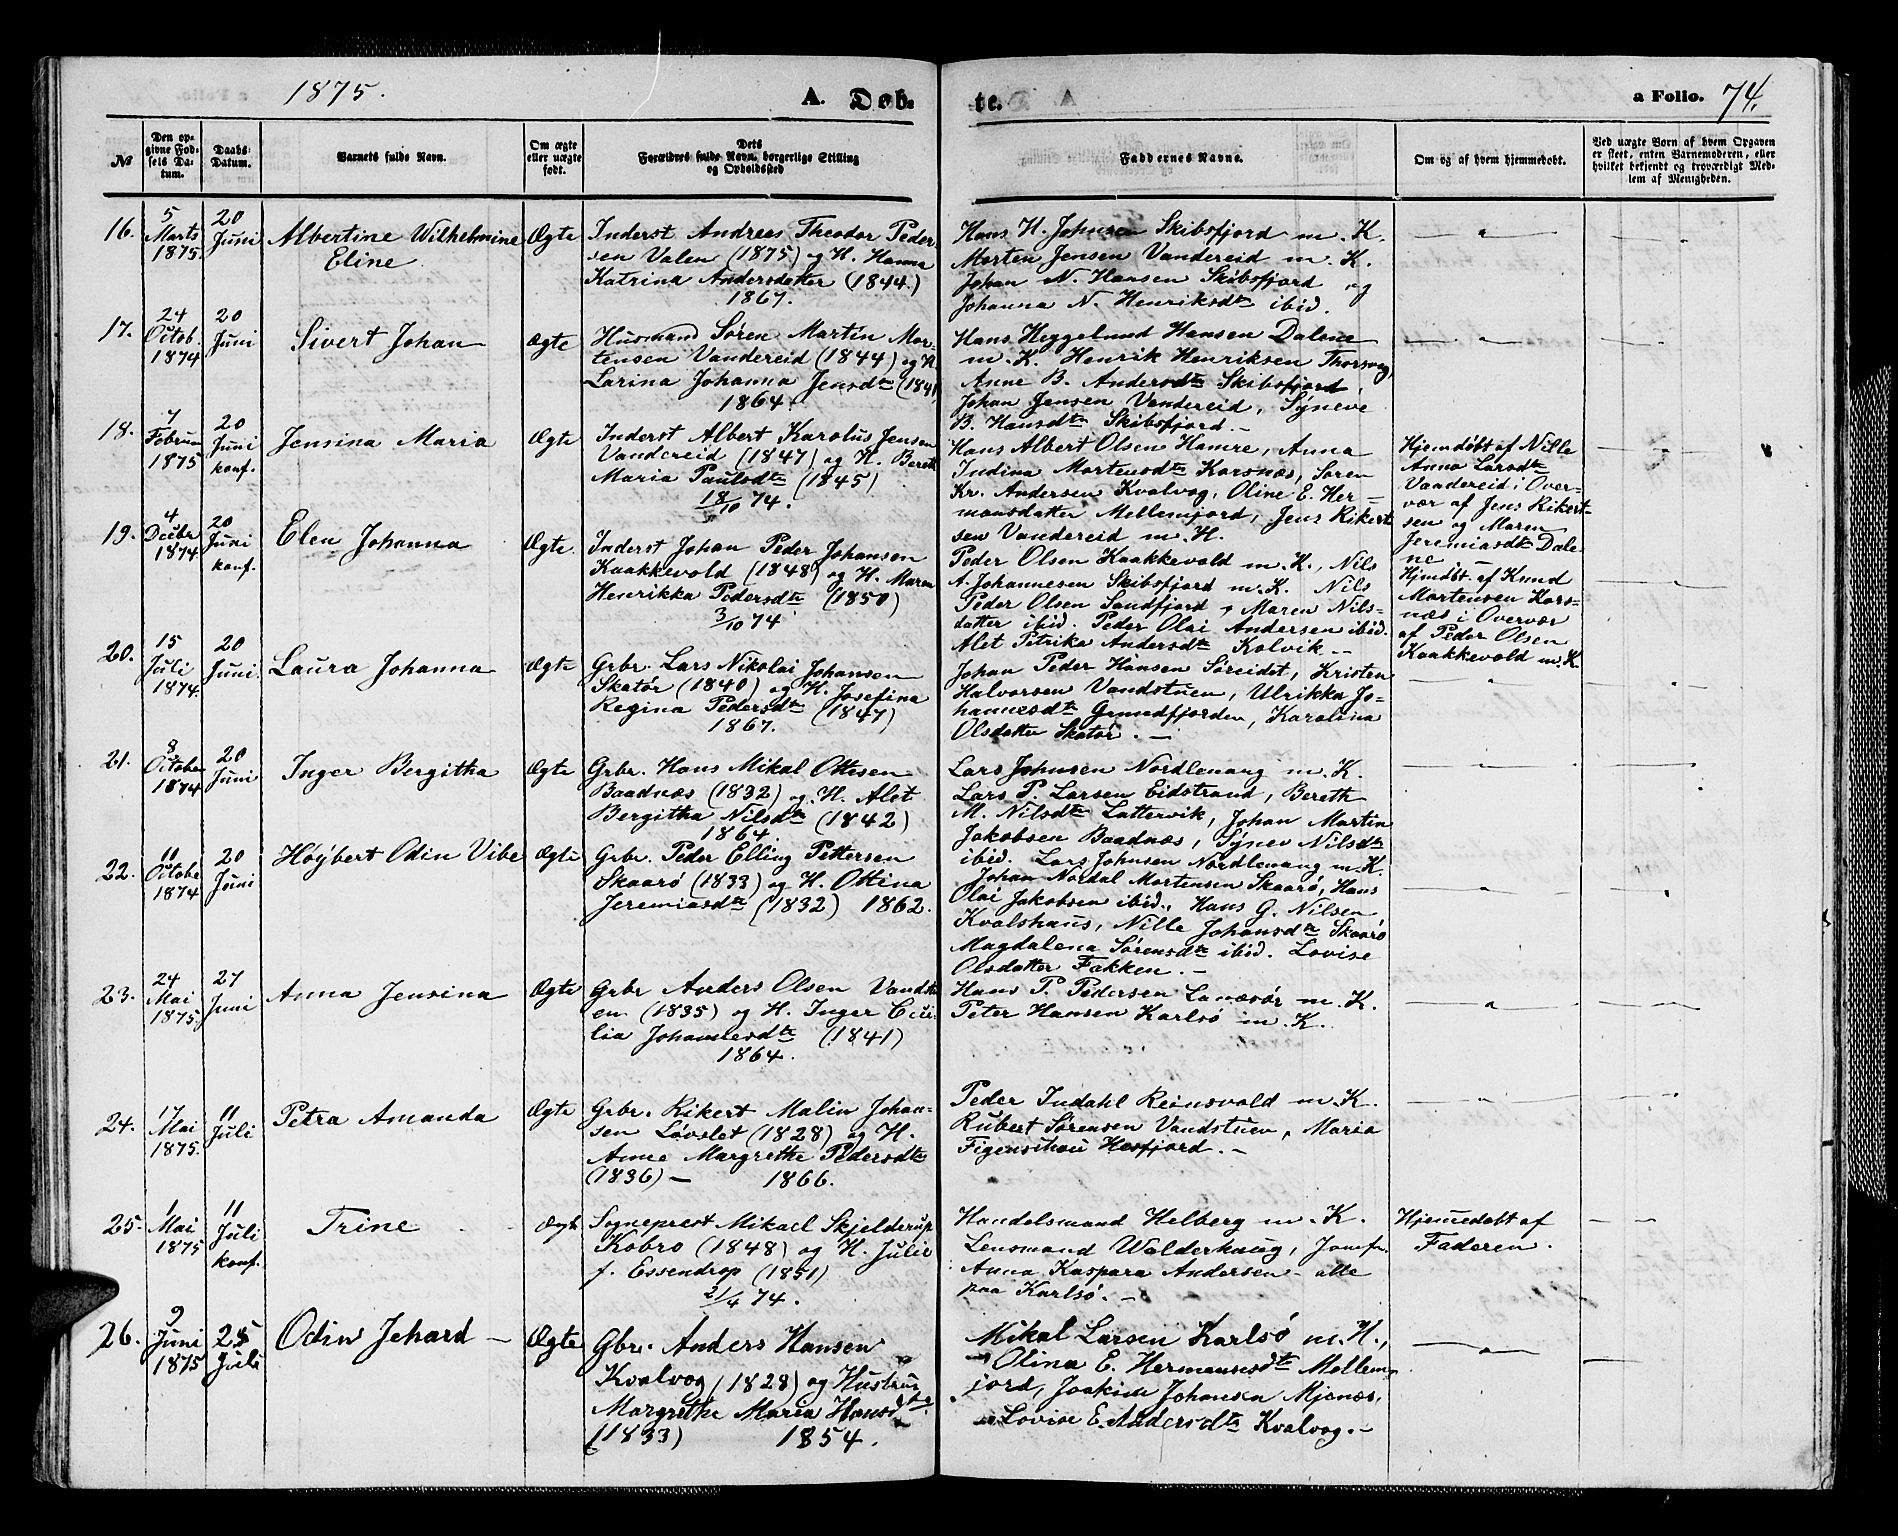 1875.
A. Døb-
te.
a Folio. 74.
№
Den op-
givne Fød-
sels Da-
tum.
Daabs-
Datum.
Barnets fulde Navn.
Om ægte
eller uægte
født.
Dets
Forældres fulde Navn, borgerlige Stilling
og Opholdssted
Faddernes Navne.
Om og af hvem hjemmedøbt.
Ved uægte Børn af hvem Opgaven
er skeet, enten Barnemoderen, eller
hvilket bekjendt og troværdigt Med-
lem af Menigheden.
16.
5
Marts
1875.
20
Juni
Albertine Wilhelmine
Eline
Ægte
Inderst Andreas Theodor Peder-
sen Valen (1875) og H. Hanna
Katrina Andersdatter (1844.)
1867.
Hans H. Johnsen Skibsfjord m. K.
Morten Jensen Vandereid m. K.
Johan N. Hansen Skibsfjord og
Johanna N. Henriksdtr ibid.
17.
24
Octob.
1874
20
Juni
Sivert Johan
Ægte
Husmand Søren Martin Mor-
tensen Vandereid (1844) og H.
Larina Johanna Jensdtr (1841
1864.
Hans Heggelund Hansen Dalene
m. K. Henrik Henriksen Thorsvog,
Anne B. Andersdtr Skibsfjord,
Johan Jensen Vandereid, Syneve
B. Hansdtr Skibsfjord. –
18.
7
Februar
1875
20
Juni
konf.
Jensina Maria
Ægte
Inderst Albert Karolus Jensen
Vandereid (1847) og H. Bereth
Maria Paulsdtr (1845)
18/10 74.
Hans Albert Olsen Hamre, Anna
Indiva Mortensdtr Korsnæs, Søren
Kr. Andersen Kvalvog, Oline E. Her-
mansdatter Mellemjord, Jens Rikert-
sen Vandereid m. H.
Hjemdøbt af Nille
Anna Larsdtr
Vandereid i Over-
vær af Jens Rikert-
sen og Maren
Jeremiasdtr Dale-
ne
19.
4
Decbr
1874
20
Juni
konf.
Elen Johanna
Ægte.
Inderst Johan Peder Johansen
Kaakkevold (1848) og H. Maren
Henrikka Pedersdtr (1850)
3/10 74
Peder Olsen Kaakkevold m. K., Nils
A. Johannesen Skibsfjord m. K. Nils
Peder Olsen Sandfjord, Maren Nils-
datter ibid. Peder Olai Andersen ibid.
Alet Petrika Andersdtr Kolvik –
Hjmdøbt. af Knud
Mortensen Kors-
næs i Overvær
af Peder Olsen
Kaakkevold m. K.
20.
15
Juli
1874.
20
Juni.
Laura Johanna
Ægte
Grbr. Lars Nikolai Johansen
Skatør (1840) og H. Josefina
Regina Pedersdtr (1847)
1867.
Johan Peder Hansen Søreidet, Kristen
Halvorsen Vandstuen, Ulrikka Jo-
hannesdtr Grundfjorden, Karolina
Olsdatter Skatør. –
21.
8
October
1874
20
Juni
Inger Bergitha
Ægte
Grbr. Hans Mikal Ottesen
Baadnæs (1832) og H. Alet
Bergitha Nilsdtr (1842)
1864.
Lars Johnsen Nordlenang m. K.
Lars P. Larsen Eidstrand, Bereth
M. Nilsdtr Lattervik, Johan Martin
Jakobsen Baadnæs, Synev Nilsdtr
ibid. Lars Johnsen Nordlenang m. K.
22.
11
Octobe
1874
20
Juni
Høybert Odin Vibe
Ægte
Grbr. Peder Elling Pettersen
Skaarø (1833) og H. Ottina
Jeremiasdtr (1832) 1862.
Johan Nordal Mortensen Skaarø, Hans
Olai Jakobsen ibid., Hans G. Nilsen
Kvalshaus, Nille Johansdtr Skaarø
Magdalena Sørensdtr ibid. Lovise
Olsdatter Fakken. –
23.
24
Mai
1875.
27
Juni
Anna Jensina
Ægte
Grbr Anders Olsen Vandstu
en (1835) og H. Inger Ceci-
lia Johannesdtr (1841)
1864.
Hans P. Pedersen Lanesør m. K.
Peter Hansen Karlsø m. K.
24.
17
Mai
1875.
11
Juli
Petra Amanda
Ægte
Grbr. Rikert Malin Johan-
sen Løvslet (1828) og H.
Anne Margrethe Pedersdtr
(1836) – 1866.
Peder Indahl Reinsvold m. K.
Rubert Sørensen Vandstuen, Maria
Figenschau Hesfjord. –
25.
1
Mai
1875
11
Juli
konf.
Trine
Ægte
Sogneprest Mikael Skjelderup
Kobro (1848) og H. Julie
f. Essendrop (1851)
21/4 74.
Handelsmand Helberg m. K.
Lensmand Walderhaug, Jomfr.
Anna Kaspara Andersen – alle
paa Karlsø. –
Hjemmedøbt af
Faderen.
26.
9
Juni
1875
25
Juli
Odin Jehard –
Ægte
Gbr. Anders Hansen
Kvalvog (1828) og Hustru
Margrethe Maria Hansdtr
(1833) 1854.
Mikal Larsen Karlsø m. H.,
Olina E. Hermansdtr Mellem-
jord, Joakim Johansen Mjønæs,
Lovise E. Andersdtr Kvalvog. –